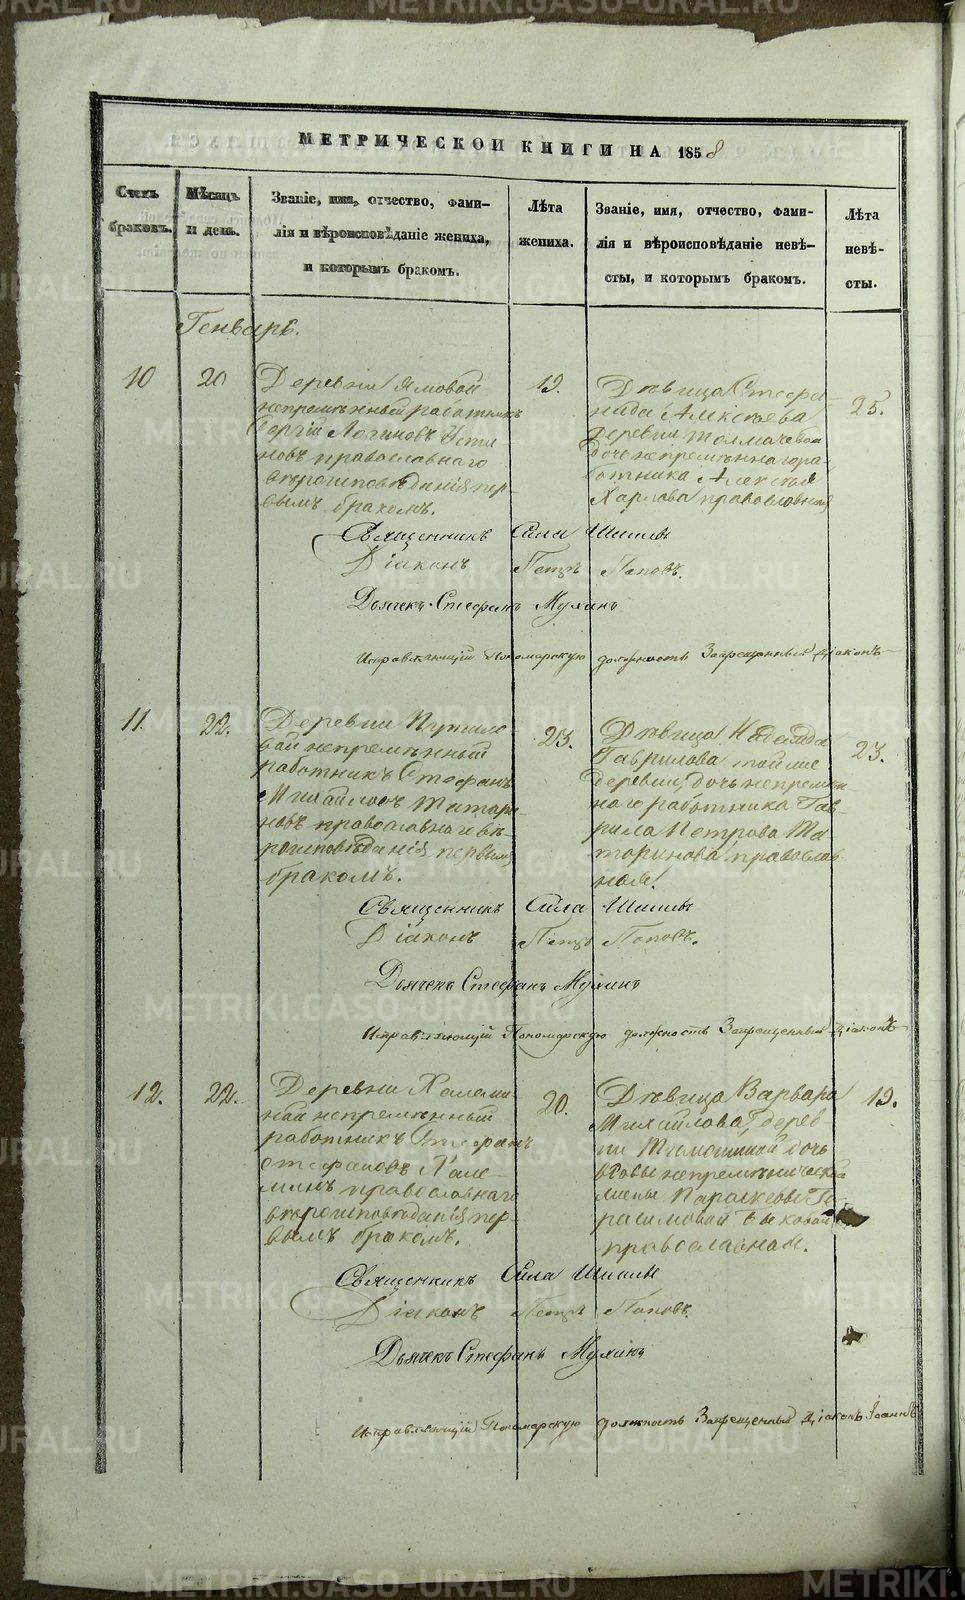 МЕТРИЧЕСКОЙ КНИГИ НА 1858
Счетъ браковъ.
Мѣсяцъ и день.
Званіе, имя, отчество, фами-
лія и вѣроисповѣданіе жениха,
и которымъ бракомъ.
Лѣта
жениха.
Званіе, имя, отчество, фами-
лія и вѣроисповѣданіе невѣ-
сты, и которымъ бракомъ.
Лѣта
невѣ-
сты.
Генварь.
10
20
Деревни Ямовой
непремѣнный работникъ
Сергій Логиновъ Усти
новъ православнаго
вѣроисповѣданія пер-
вымъ бракомъ.
19.
Дѣвица Стефа-
нида Алексѣева
деревни Толмачевой
дочь непремѣннаго ра-
ботника Алексѣя
Харлова православная
25.
Священникъ Сила Шишевъ
Діаконъ Петръ Поповъ.
Дьячекъ Стефанъ Мухинъ
Исправляющій Пономарскую должность Запрещенный Діаконъ
11.
22.
Деревни Путило-
вой непремѣнный
работникъ Стефанъ
Михайловъ Татари-
новъ православнаго вѣ-
роисповѣданія первымъ
бракомъ.
23.
Дѣвица Надежда
Гаврилова той же
деревни, дочь непремѣн-
наго работника Гав-
рила Петрова Та-
таринова, православ-
ная.
23.
Священникъ Сила Шишевъ
Діаконъ Петръ Поповъ.
Дьячекъ Стефанъ Мухинъ
Исправляющій Пономарскую должность Запрещенный Діаконъ
12.
22.
Деревни Халеми-
ной непремѣнный
работникъ Стефанъ
Стефановъ Хале-
минъ православнаго
вѣроисповѣданія пер-
вымъ бракомъ.
20.
Дѣвица Варвара
Михайлова, дерев-
ни Тимошиной дочь
вдовы непремѣннической
жены Параскевы Ге-
расимовой Быковой
православная.
19.
Священникъ Сила Шишевъ
Діаконъ Петръ Поповъ.
Дьячекъ Стефанъ Мухинъ
Исправляющій Пономарскую должность Запрещенный Діаконъ Іоаннъ
METRIKI.GASO-URAL.RU